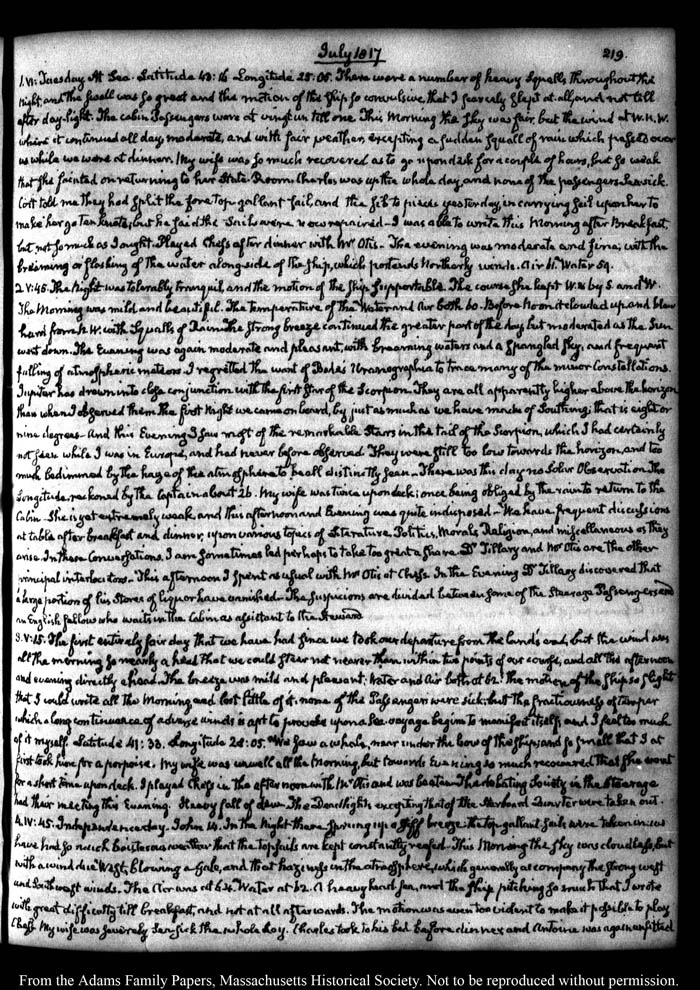 July 1817
219.
1. VI: Tuesday At Sea. Latitude 43:16 Longitude 25:05. There were a number of heavy Squalls throughout the
night, and the swell was so great and the motion of the Ship so convulsive, that I scarcely slept at all, and not till
after day-light. The Cabin Passengers were at vingt un till one. This Morning the Sky was fair, but the wind at W.N.W.
where it continued all day, moderate, and with fair weather, excepting a sudden squall of rain which passed over
us while we were at dinner. My wife was so much recovered as to go upon deck for a couple of hours, but so weak
that she fainted on returning to her State Room. Charles was up the whole day, and none of the passengers Seasick.
told me they had split the fore top-gallant sail, and the jib to pieces yesterday, in carrying sail upon her to
make her go Ten knots; but he said the Sails were now repaired. I was able to write this Morning after Breakfast,
but not so much as I ought. Played Chess after dinner with Mr Otis. The evening was moderate and fine; with the
or flashing of the water alongside of the Ship, which portends Northerly winds. Air 61. Water 59.
2. V:45. The Night was tolerably tranquil, and the motion of the Ship supportable. The course she kept W. by S. and W.
The Morning was mild and beautiful. The temperature of the Water and Air both 60. Before Noon it clouded up and blew
hard from N.W. with Squalls of Rain. The strong breeze continued the greater part of the day, but moderated as the Sun
went down. The Evening was again moderate and pleasant, with waters and a spangled sky, and frequent
falling of atmospheric meteors. I regretted the want of Bode's Uranographia to trace many of the minor Constellations.
Jupiter has drawn into close conjunction with the first Star of the Scorpion. They are all apparently higher above the horizon
than when I observed them the first Night we came on board, by just as much as we have made of Southing; that is eight or
nine degrees. And this Evening I saw most of the remarkable Stars in the tail of the Scorpion, which I had certainly
not seen while I was in Europe, and had never before observed. They were still too low towards the horizon, and too
much bedimmed by the haze of the atmosphere to be all distinctly seen. There was this day no Solar Observation. The
Longitude reckoned by the Captain about 26. My wife was twice upon deck; once being obliged by the rain to return to the
Cabin. She is yet extremely weak, and this afternoon and Evening was quite indisposed. We have frequent discussions
at table after breakfast and dinner, upon various topics of Literature, Politics, Morals, Religion, and miscellaneous as they
arise. In these Conversations, I am sometimes led perhaps to take too great a share. Dr Tillary and Mr Otis are the other
principal interlocutors. This afternoon I spent as usual with Mr Otis at Chess. In the Evening Dr Tillary discovered that
a large portion of his Stores of liquor have vanished. The suspicions are divided between some of the Steerage Passengers and
an English fellow who waits in the Cabin as assistant to the Steward.
3. V:15. The first entirely fair day that we have had since we took our departure from the lands end, but the wind was
all the morning so nearly a head that we could steer not nearer than within two points of our course, and all the afternoon
and evening directly ahead. The breeze was mild and pleasant, Water and Air both at 62. The motion of the Ship so slight
that I could write all the Morning and lost little of it. None of the Passengers were sick: but the fractiousness of temper
which a long continuance of adverse winds is apt to provoke upon a sea-voyage begins to manifest itself, and I feel too much
of it myself. Latitude 41:33. Longitude 28:05. We saw a whale, near under the bow of the ship, and so small that I at
first took him for a porpoise. My wife was unwell all the Morning, but towards Evening so much recovered that she went
for a short time upon deck. I played Chess in the afternoon with Mr Otis and was beaten. The debating Society in the Steerage
had their meeting this Evening. Heavy fall of dew. The Dead lights excepting that of the Starboard Quarter were taken out.
4. IV:45. Independence day. John 14. In the Night there sprung up a stiff breeze. The top-gallant sails were taken in. We
have had so much boisterous weather that the Topsails are kept constantly reefed. This Morning the Sky was cloudless, but
with a wind due West, blowing a Gale, and that haziness in the atmosphere, which generally accompany the strong west
and Southwest winds. The Air was at 64. Water at 62. A heavy head sea, and the Ship pitching so much that I wrote
with great difficulty till breakfast, and not at all afterwards. The motion was even too violent to make it possible to play
Chess. My wife was severely Seasick the whole day. Charles took to his bed before dinner, and Antoine was again unfitted
From the Adams Family Papers, Massachusetts Historical Society. Not to be reproduced without permission.